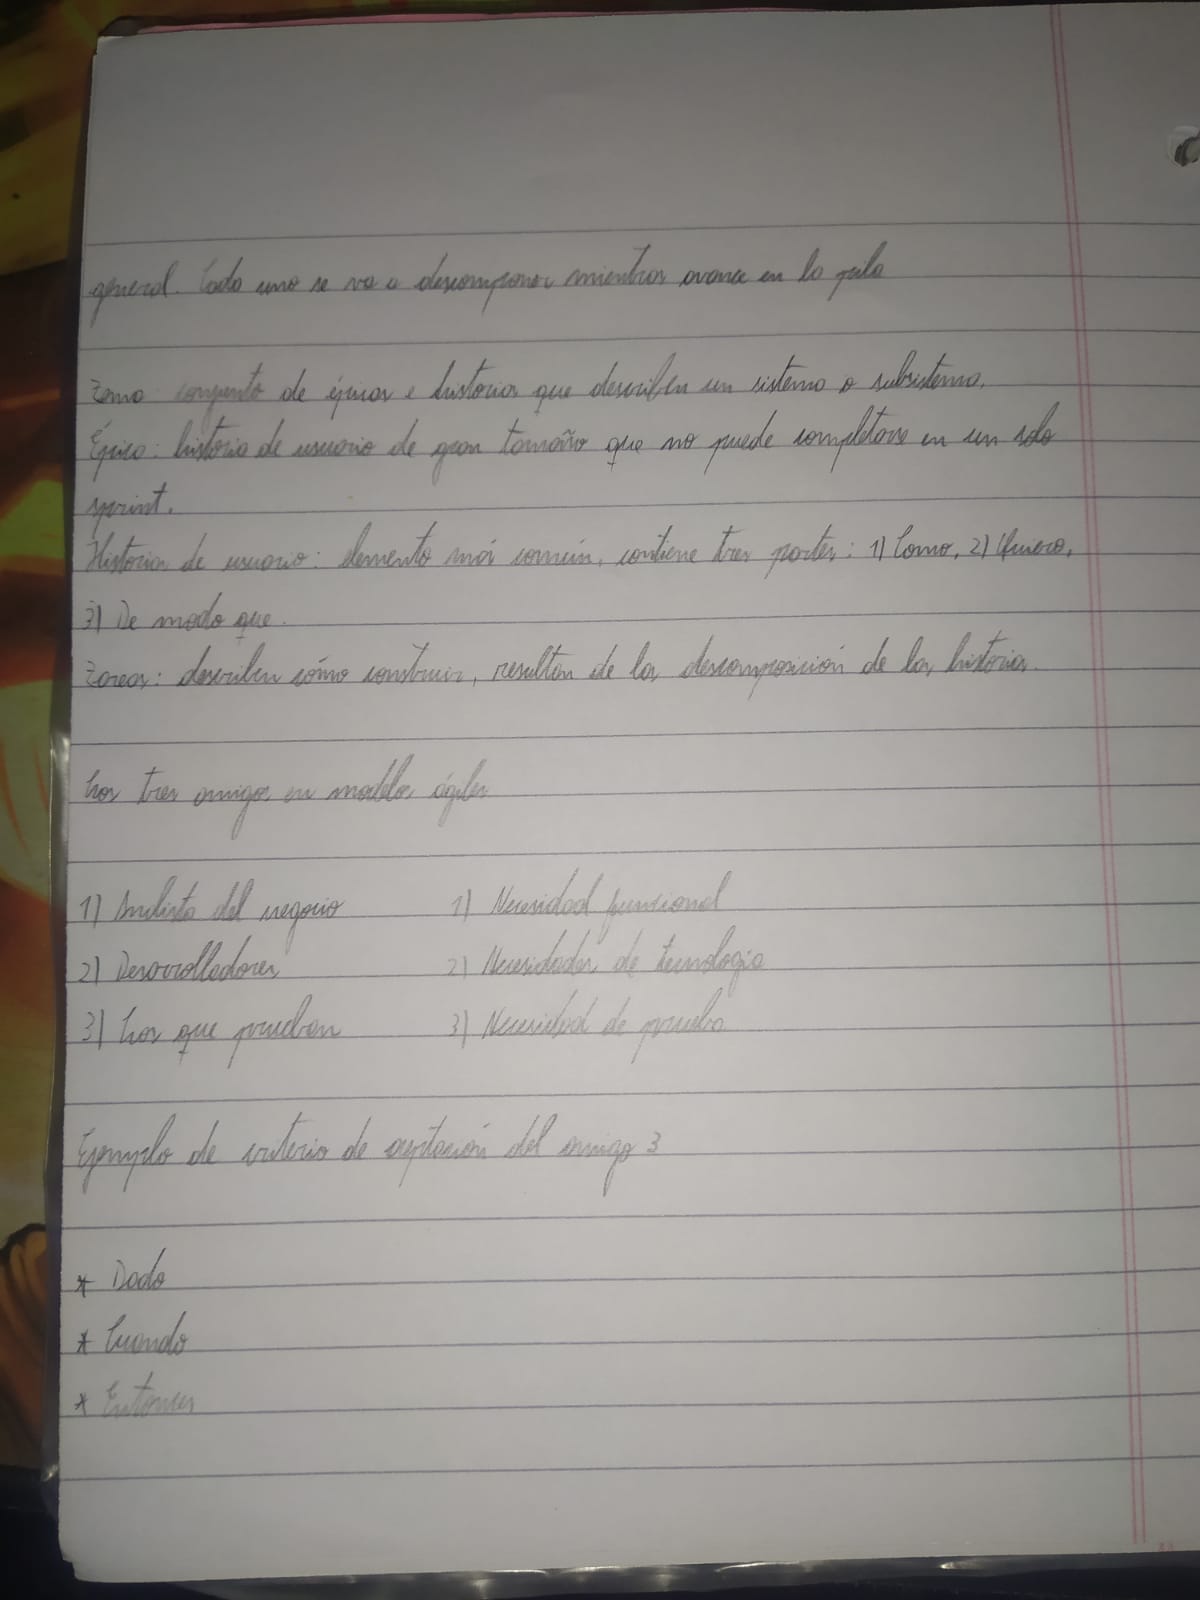 general. Cada uno se va a descomponer mientras avance en la pila
Tema: conjunto de épicas e historias que describen un sistema o subsistema.
Épica: historia de usuario de gran tamaño que no puede completarse en un solo
sprint.
Historias de usuario: elemento más común, contiene tres partes: 1) Como, 2) Quiero,
3) De modo que.
Tareas: describen cómo construir, resultan de la descomposición de las historias.
Los tres amigos en modelos ágiles
1) Analista del negocio 1) Necesidad funcional
2) Desarrolladores 2) Necesidades de tecnología
3) Los que prueban 3) Necesidad de prueba
Ejemplo de criterio de aceptación del amigo 3
* Dado
* Cuando
* Entonces